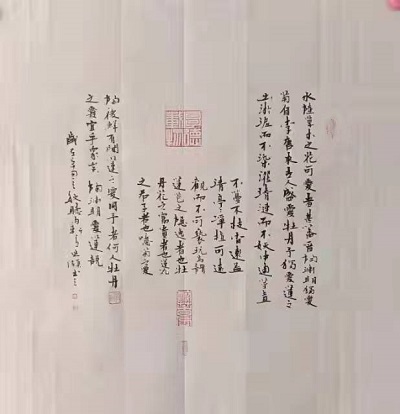 水陸草木之花可愛者甚蕃晋陶淵明獨愛
菊自李唐来世人盛愛牡丹予獨愛蓮之
出淤泥而不染濯清漣而不妖中通外直
不蔓不枝香遠益
清亭亭净植可遠
觀而不可褻玩焉謂
之隱逸者也牡
丹花之富貴者也蓮花
之君子者也噫菊之愛
陶後鮮有聞蓮之愛同予者何人牡丹
之愛宜乎衆矣陶淵明愛蓮說
歲在